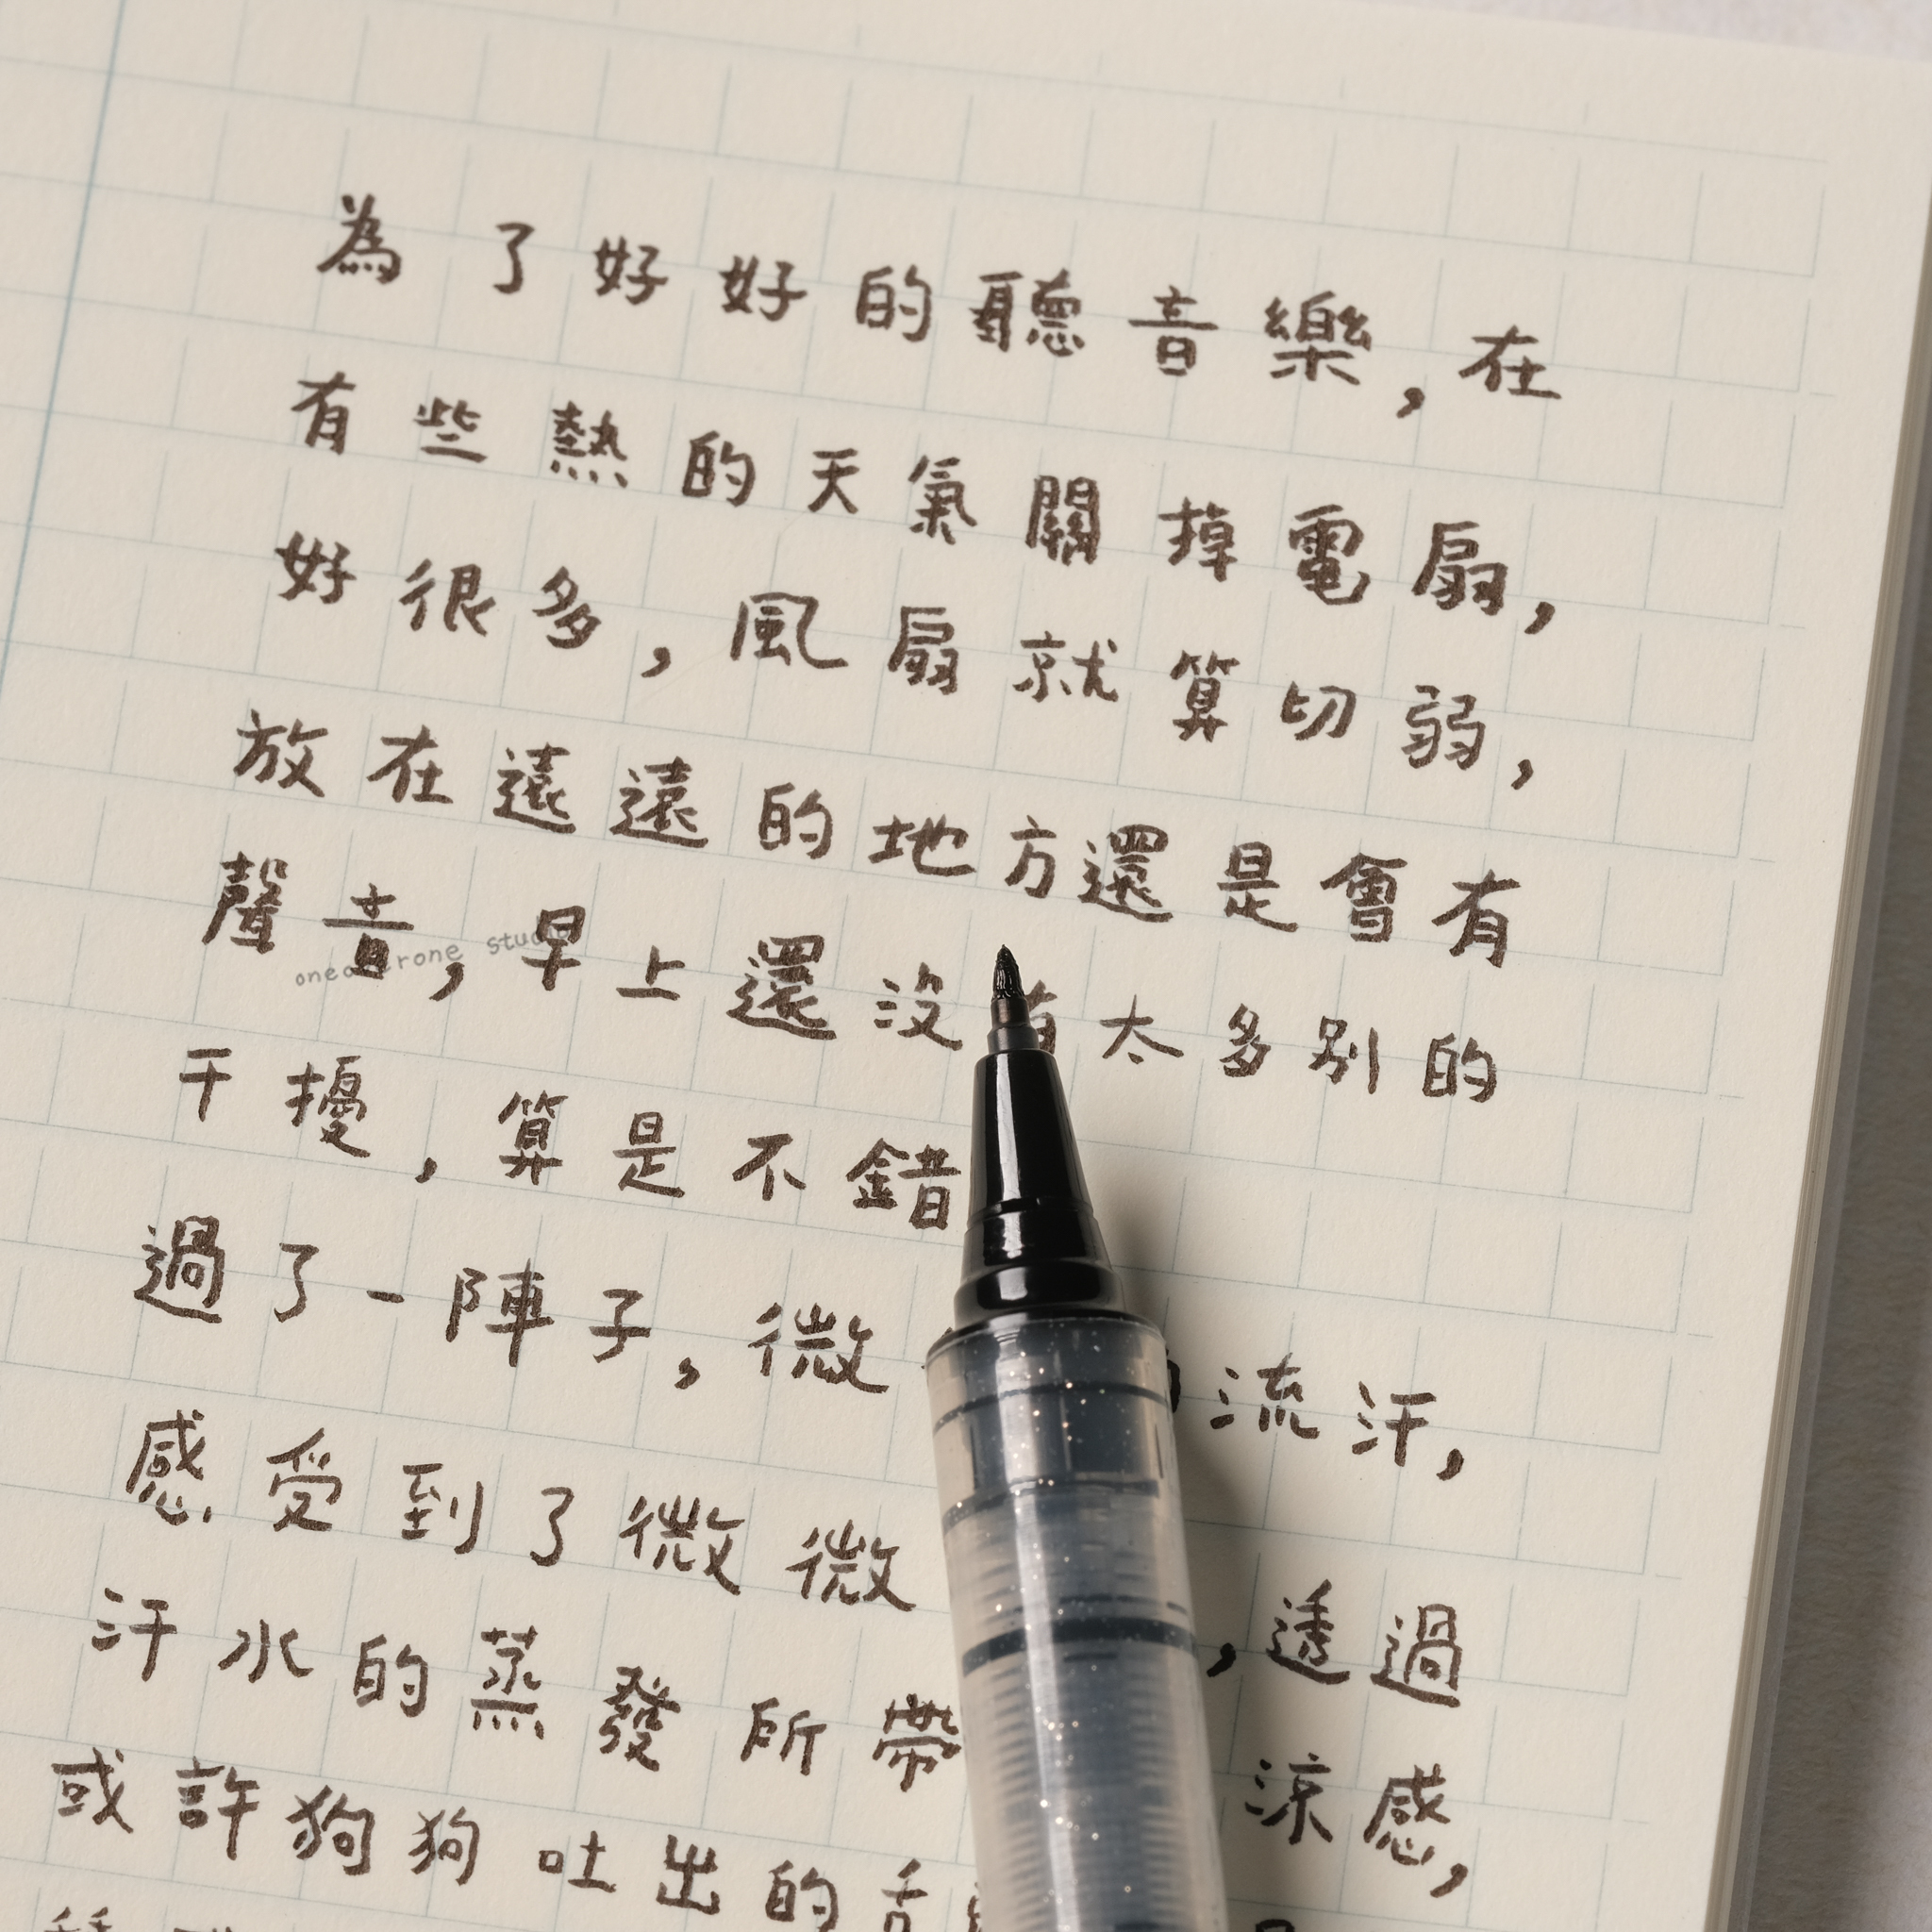 為了好好的聽音樂,在
有些熱的天氣關掉電扇,
好很多,風扇就算切弱,
放在遠遠的地方還是會有
聲音,早上還沒有太多別的
干擾,算是不錯
過了一陣子,微 流汗,
感受到了微微 ,透過
汗水的蒸發所帶 涼感,
或許狗狗吐出的舌